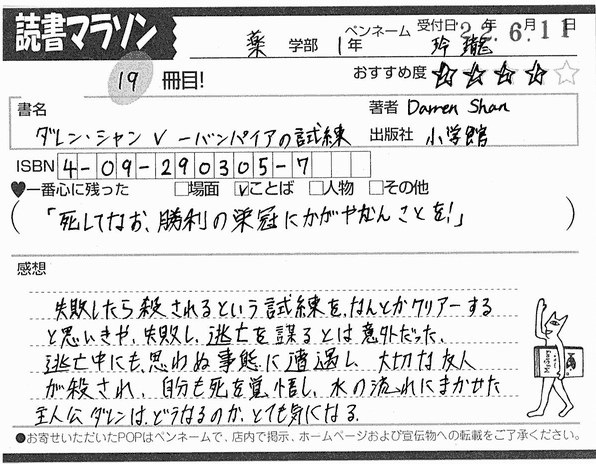 読書マラソン
薬 学部 1年 ペンネーム 玲瓏 受付日'22年6月11日
19 冊目! おすすめ度 ★★★★☆
書名 著者 Darren Shan
ダレン・シャン V ーバンパイアの試練 出版社 小学館
ISBN 4-09-290305-7
♥一番心に残った □場面 ☑ことば □人物 □その他
(「死してなお、勝利の栄冠にかがやかんことを!」)
感想
失敗したら殺されるという試練を、なんとかクリアーする
と思いきや、失敗し、逃亡を謀るとは意外だった。
逃亡中にも、思わぬ事態に遭遇し、大切な友人
が殺され、自分も死を覚悟し、水の流れにまかせた
主人公ダレンは、どうなるのか、とても気になる。
●お寄せいただいたPOPはペンネームで、店内で掲示、ホームページおよび宣伝物への転載をご了承ください。